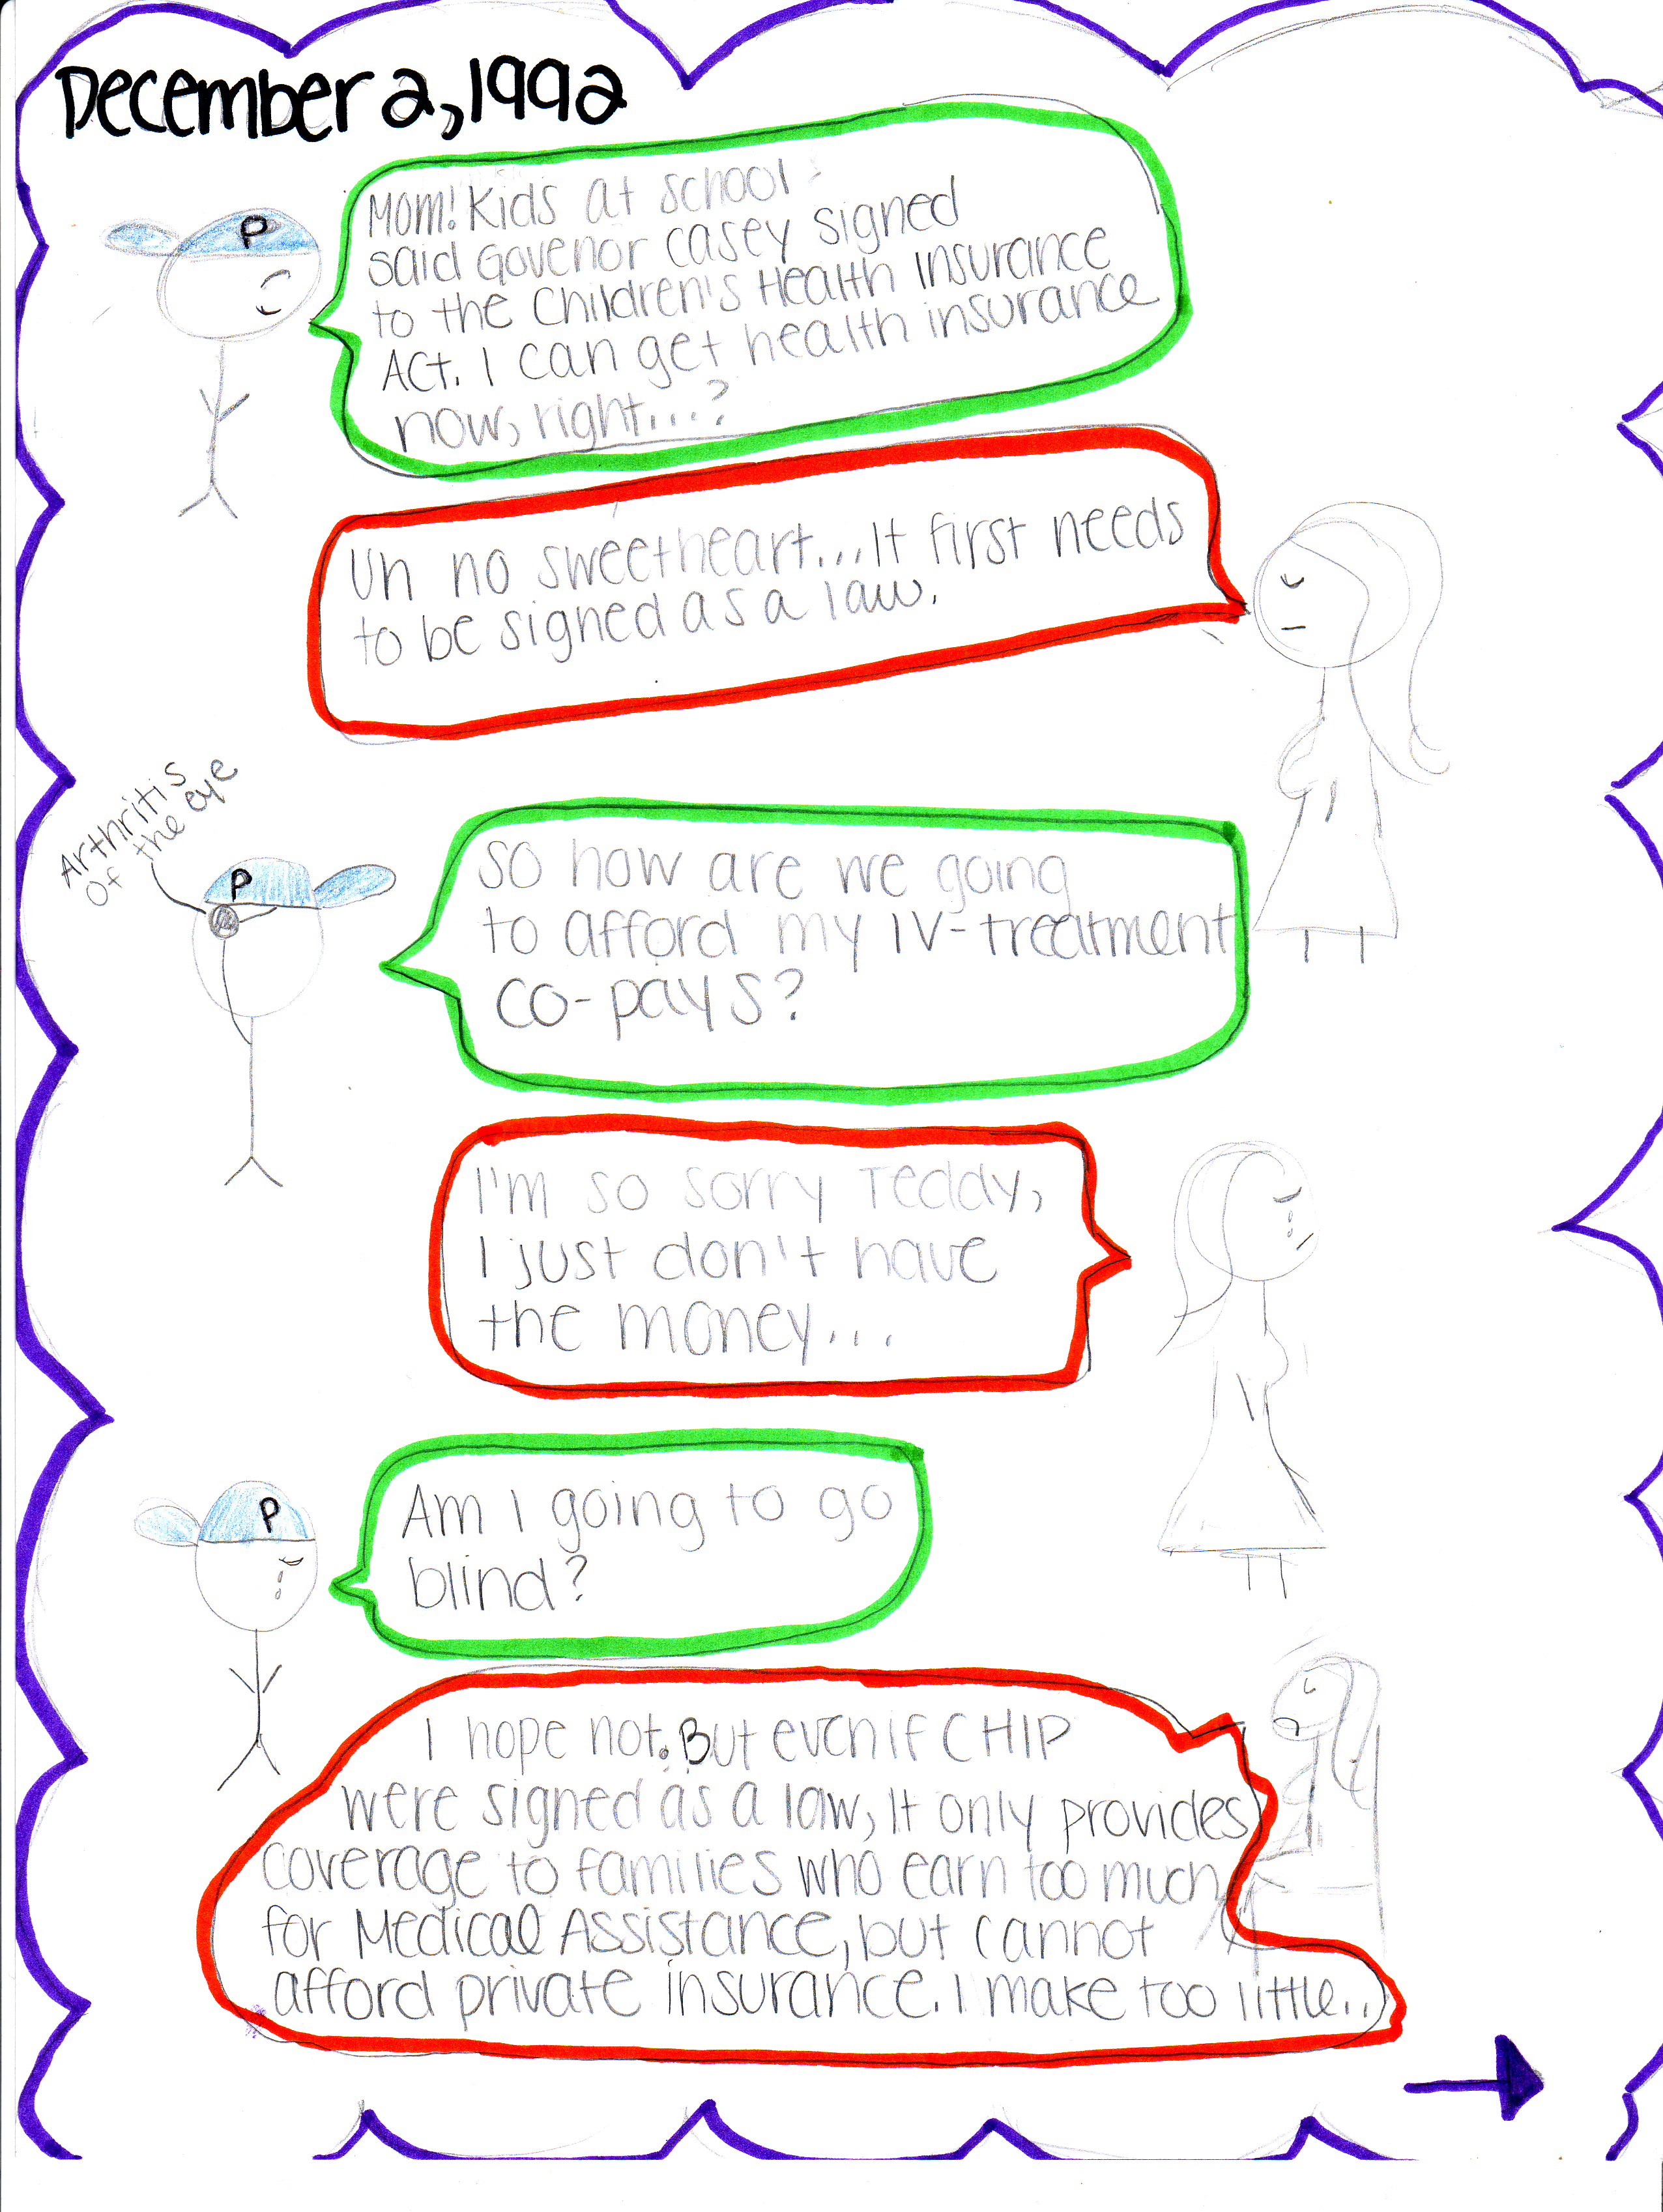 December 2, 1992
P
Mom! Kids at school
said Govenor Casey signed
to the Children's Health Insurance
Act. I can get health insurance
now, right...?
Uh no sweetheart... It first needs
to be signed as a law.
Arthritis
of the eye
P
So how are we going
to afford my IV-treatment
co-pays?
I'm so sorry Teddy,
I just don't have
the money...
P
Am I going to go
blind?
I hope not. But even if CHIP
were signed as a law, It only provides
coverage to families who earn too much
for Medical Assistance, but cannot
afford private insurance. I make too little..